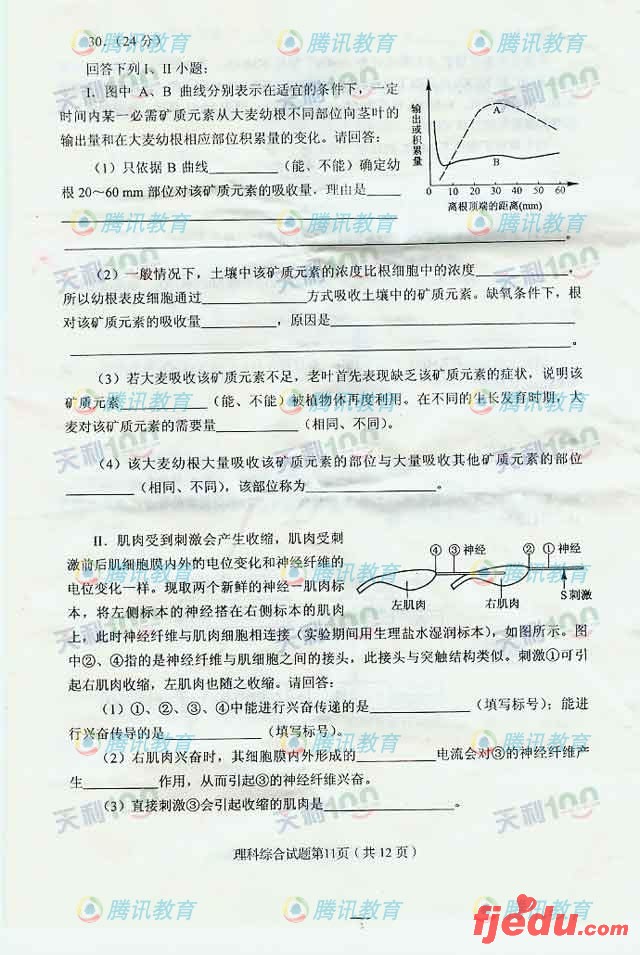 30．（24 分）
回答下列 I、II 小题：
I．图中 A、B 曲线分别表示在适宜的条件下，一定
时间内某一必需矿质元素从大麦幼根不同部位向茎叶的
输出量和在大麦幼根相应部位积累量的变化。请回答：
（1）只依据 B 曲线________（能、不能）确定幼
根 20～60 mm 部位对该矿质元素的吸收量．理由是____
________。
输出或积累量
A
B
0 10 20 30 40 50 60
离根顶端的距离(mm)
（2）一般情况下，土壤中该矿质元素的浓度比根细胞中的浓度________，
所以幼根表皮细胞通过________方式吸收土壤中的矿质元素。缺氧条件下，根
对该矿质元素的吸收量________，原因是________
________。
（3）若大麦吸收该矿质元素不足，老叶首先表现缺乏该矿质元素的症状，说明该
矿质元素________（能、不能）被植物体再度利用。在不同的生长发育时期，大
麦对该矿质元素的需要量________（相同、不同）。
（4）该大麦幼根大量吸收该矿质元素的部位与大量吸收其他矿质元素的部位
________（相同、不同），该部位称为________。
II．肌肉受到刺激会产生收缩，肌肉受刺
激前后肌细胞膜内外的电位变化和神经纤维的
电位变化一样。现取两个新鲜的神经一肌肉标
本，将左侧标本的神经搭在右侧标本的肌肉
④ ③神经 ② ①神经
左肌肉 右肌肉 S刺激
上，此时神经纤维与肌肉细胞相连接（实验期间用生理盐水湿润标本），如图所示。图
中②、④指的是神经纤维与肌细胞之间的接头，此接头与突触结构类似。刺激①可引
起右肌肉收缩，左肌肉也随之收缩。请回答：
（1）①、②、③、④中能进行兴奋传递的是________（填写标号）；能进
行兴奋传导的是________（填写标号）。
（2）右肌肉兴奋时，其细胞膜内外所形成的________电流会对③的神经纤维产
生________作用，从而引起③的神经纤维兴奋。
（3）直接刺激③会引起收缩的肌肉是________。
理科综合试题第11页（共 12 页）
腾讯教育
天利100
fjedu.com